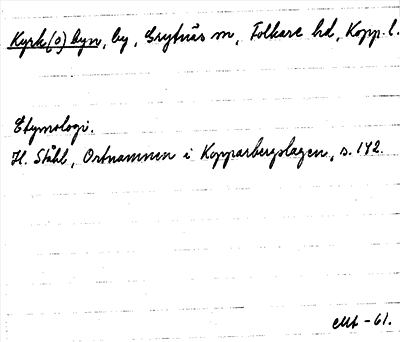 Kyrk(o)byn, by, Grytnäs sn, Folkare hd, Kopp. l.
Etymologi.
H. Ståhl, Ortnamnen i Kopparbergslagen, s. 142.
-61.